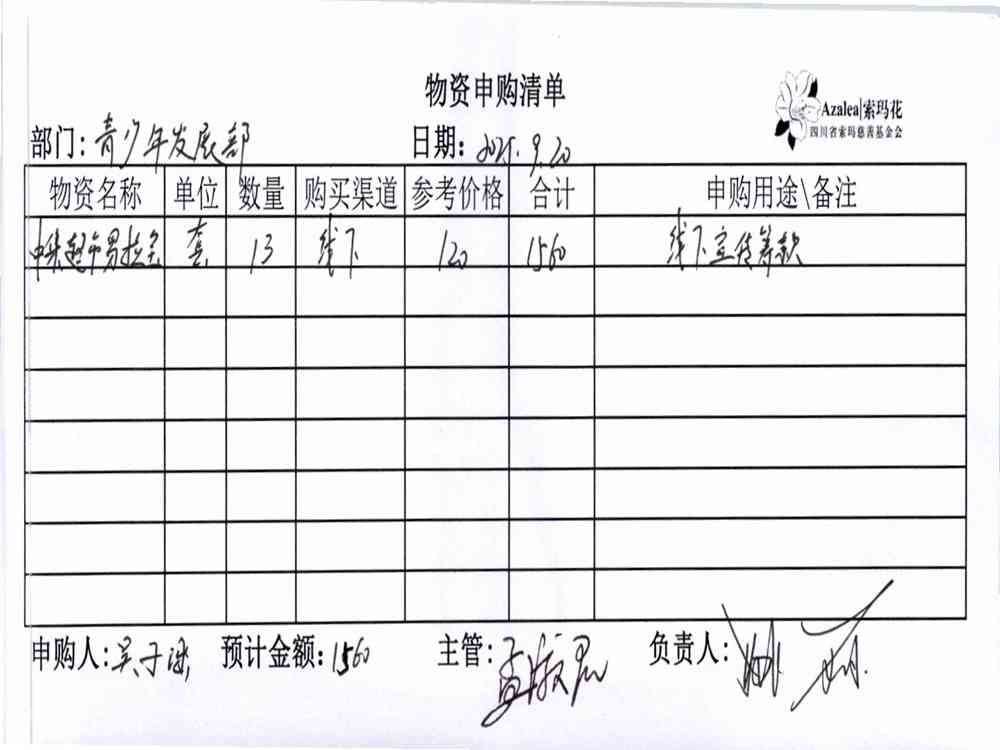 物资申购清单
Azalea|索玛花
四川省索玛慈善基金会
部门：青少年发展部 日期：2025.9.20
物资名称 单位 数量 购买渠道 参考价格 合计 申购用途\备注
套 13 线下 120 1560 线下宣传筹款
申购人：吴子 预计金额：1560 主管：孟 负责人：